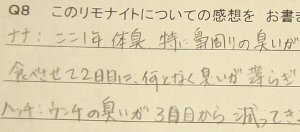 Q8 このリモナイトについての感想を お書き
ナナ:ここ1年 体臭、特に鼻周りの臭いが
食べさせて2日目に、何となく臭いが落らぎ
ハッチ:ウンチの臭いが3日目から 減ってき